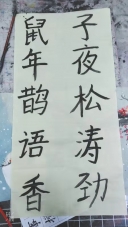 子夜松涛劲
鼠年鹊语香